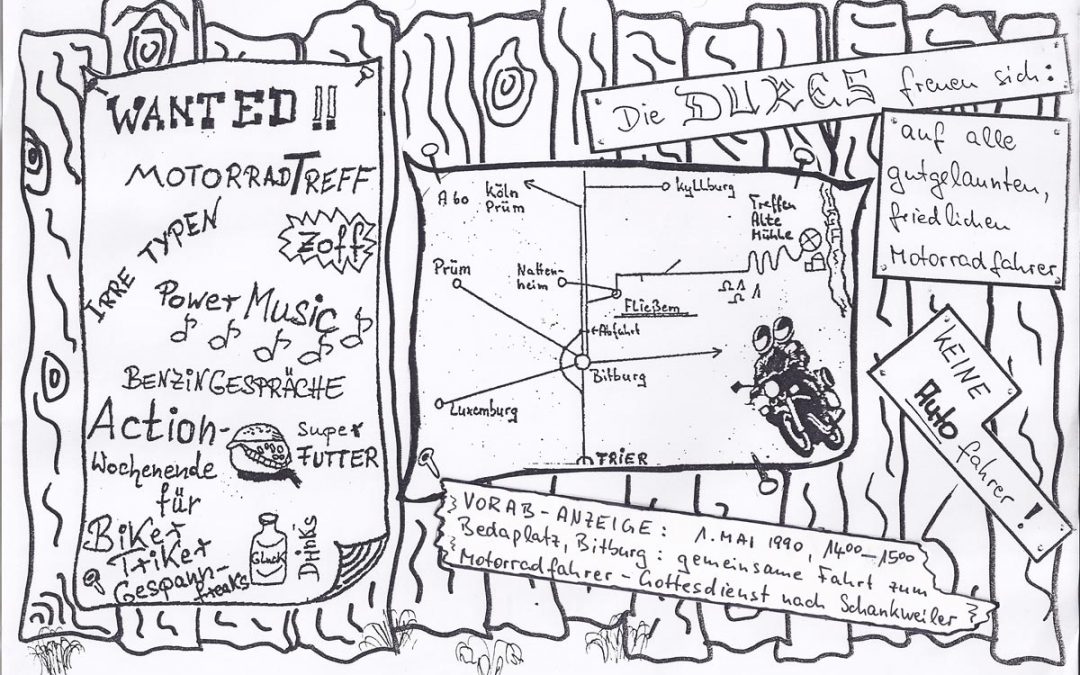 WANTED !!
MOTORRADTREFF
IRRE TYPEN
Zoff
Power Music
BENZINGESPRÄCHE
Action-
Wochenende
für
Biker
Triker
Gespann-
freaks
Super
FUTTER
Gluck
Die DUKES freuen sich:
auf alle
gutgelaunten,
friedlichen
Motorradfahrer
KEINE
Auto fahrer!
A60
Köln
Prüm
Kyllburg
Treffen
Alte
Mühle
Prüm
Natten-
heim
Fließem
Abfahrt
Bitburg
Luxemburg
TRIER
VORAB-ANZEIGE: 1. MAI 1990, 14⁰⁰–15⁰⁰
Bedaplatz, Bitburg: gemeinsame Fahrt zum
Motorradfahrer-Gottesdienst nach Schankweiler